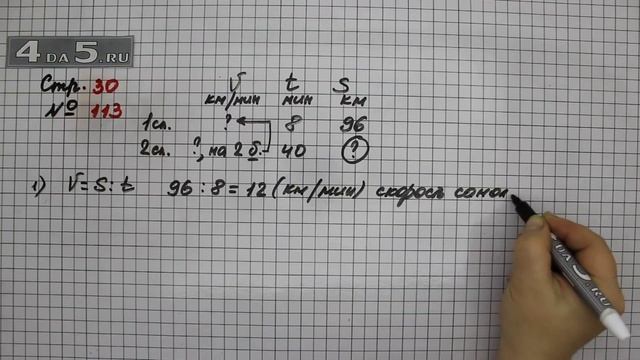 4 DA 5.RU
Стр. 30
№ 113
V t S
км/мин мин км
1сл. ? 8 96
2сл. ?, на 2 б. 40 ?
1) V=S:t 96:8=12 (км/мин) скорость самол
4 DA 5.RU